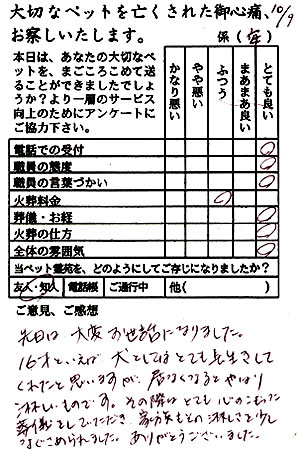 大切なペットを亡くされた御心痛、
10/9
お察しいたします。
係( )
本日は、あなたの大切なペ
ットを、まごころこめて送
ることができましたでしょ
うか？より一層のサービス
向上のためにアンケートに
ご協力下さい。
かなり悪い
やや悪い
ふつう
まあまあ良い
とても良い
電話での受付
職員の態度
職員の言葉づかい
火葬料金
葬儀・お経
火葬の仕方
全体の雰囲気
当ペット霊苑を、どのようにしてご存じになりましたか？
友人・知人 電話帳 ご通行中 他( )
ご意見、ご感想
先日は大変お世話になりました。
16才といえば犬としてはとても長生きして
くれたと思いますが、居なくなるとやはり
淋しいものです。その際はとても心のこもった
葬儀をしていただき、家族もその淋しさを少し
なぐさめられました。ありがとうございました。